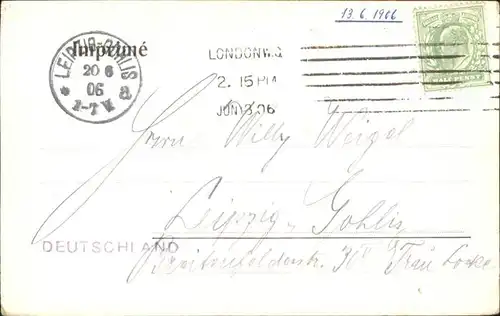 13.6.1906
Imprimé
LEIPZIG-GOHLIS
20 6
06
1-7 V
* a
LONDON.W.
2. 15 PM
JUN 06
Herrn Willy Weigel
Leipzig-Gohlis
DEUTSCHLAND
30 Frau